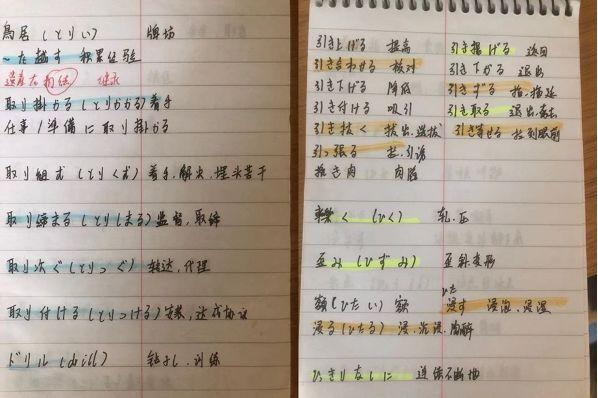 鳥居（とりい） 牌坊
〜た越す 积累经验
遺産を 相伝 继承
取り掛かる（とりかかる）着手
仕事/準備に取り掛かる
取り組む（とりくむ）着手，解决，埋头苦干
取り締まる（とりしまる）监督，取缔
取り次ぐ（とりつぐ）转达，代理
取り付ける（とりつける）安装，达成协议
ドリル（drill） 钻子し，训练
引き上げる 提高
引き揚げる 返回
引き合わせる 核对
引き下がる 退出
引き下げる 降低
引きずる 拖，拖延
引き付ける 吸引
引き取る 退出，离去
引き抜く 拔出，选拔
引き寄せる 拉到眼前
引っ張る 拉，引诱
挽き肉 肉馅
轢く（ひく） 轧，压
歪み（ひずみ） 歪斜变形
額（ひたい）额
ひた
浸す 浸泡，浸湿
浸る（ひたる）浸，沉浸，陶醉
ひっきり 连续不断地